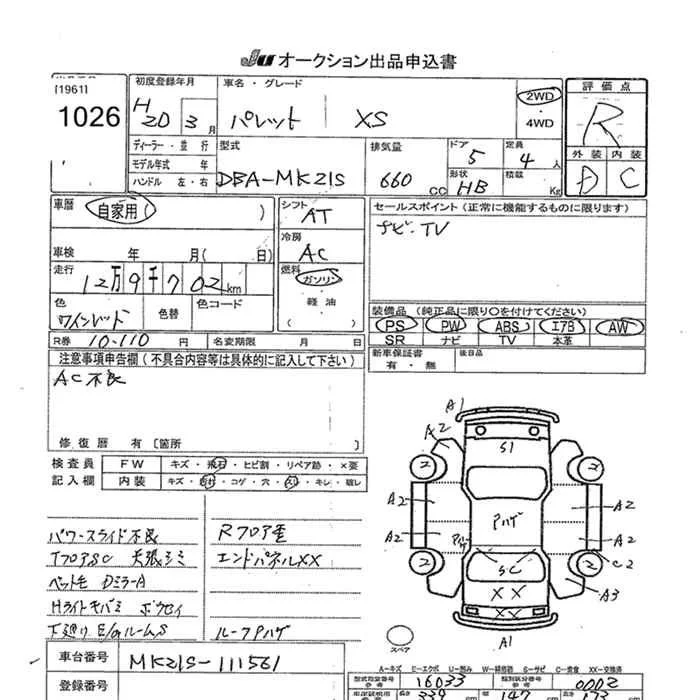 JU オークション出品申込書
[1961]
1026
初度登録年月
H20 3月
車名・グレード
パレット XS
2WD
・
4WD
評価点
R
外装 内装
D C
ディーラー・並行
モデル年式 年
ハンドル 左・右
型式
DBA-MK21S
排気量
660 CC
ドア
5
定員
4人
形状
HB
積載
Kg
車歴
自家用( )
車検 年 月( 日)
走行
12万9千702km
色
ワインレッド
色替
色コード
シフト
AT
冷房
AC
燃料
ガソリン
・
軽油
( )
セールスポイント(正常に機能するものに限ります)
ナビ・TV
装備品 (純正品に限り○を付けてください)
PS PW ABS エアB AW
SR ナビ TV 本革
新車保証書
有・無
後日品
R券 10,110 円
名変期限 月 日
注意事項申告欄(不具合内容等は具体的に記入して下さい)
AC不良
修復歴 有〔箇所
検査員
記入欄
FW キズ・飛石・ヒビ割・リペア跡・×要
内装 キズ・汚れ・コゲ・穴・スレ・キレ・破レ
パワースライド不良
TフロアSC 天張シミ
ペット毛 DミラーA
Hライトキバミ ボウセイ
下廻り E/gルームS
Rフロア歪
エンドパネルXX
ルーフPハゲ
A1
A2
A2
S1
2
2
A2
A2
Pハゲ
Pハゲ
A2
A2
C2
2
2
SC
XX
XX
A3
A1
スペア
車台番号
MK21S-111561
登録番号
A-キズ E-エクボ U-凹み W-補修跡 S-サビ C-腐食 XX-交換済
型式指定番号
参考
16033
類別区分番号
参考
0002
長さ
339
cm
幅
147
cm
高さ
173
cm